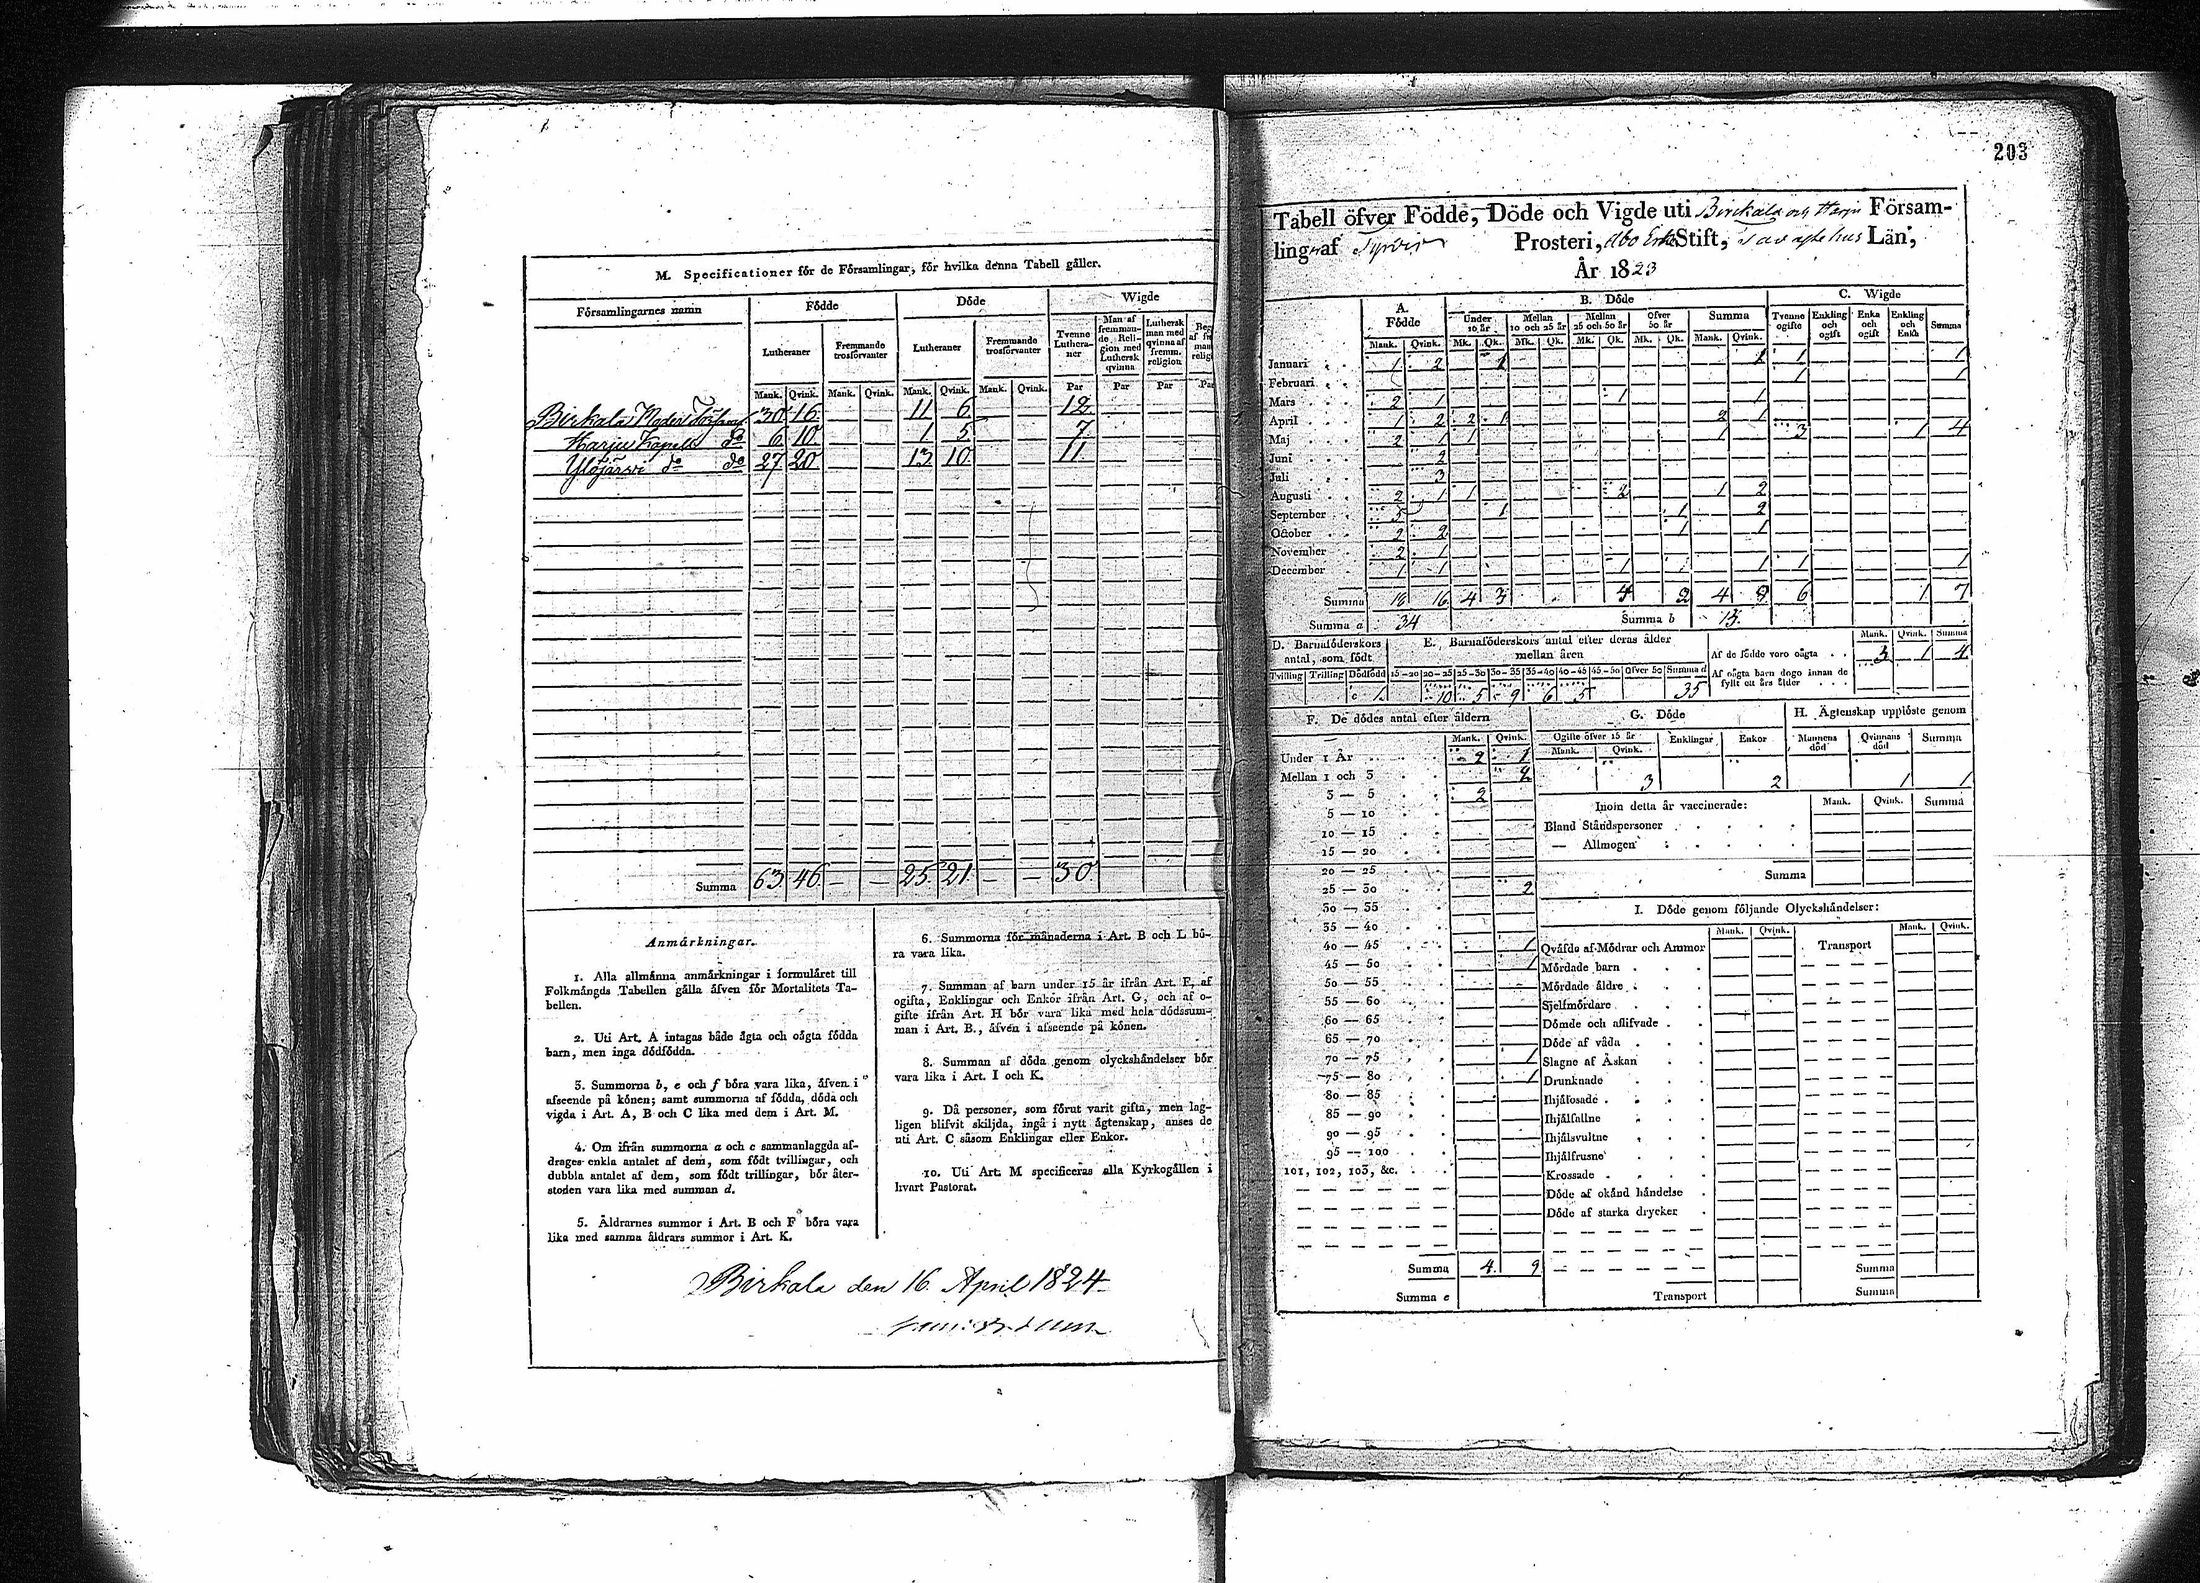 M. Specificationer för de Församlingar, för hvilka denna Tabell gäller.
Församlingarnes namn
Födde
Döde
Wigde
Lutheraner
Fremmande trosförvanter
Lutheraner
Fremmande trosförvanter
Tvenne Lutheraner
Man af fremmande Religion med Luthersk qvinna
Luthersk man med qvinna af fremm. religion
Mank. Qvink. Mank. Qvink. Mank. Qvink. Mank. Qvink. Par Par Par Par
Birkala Moder 30 16 11 6 12
Harju Kapell do 6 10 1 5 7
Ylöjärvi do do 27 20 13 10 11
Summa 63 46 — — 25 21 — — 30
Anmärkningar.
1. Alla allmänna anmärkningar i formuläret till
Folkmängds Tabellen gälla äfven för Mortalitets Ta-
bellen.
2. Uti Art. A intagas både ägta och oägta födda
barn, men inga dödfödda.
3. Summorna b, e och f böra vara lika, äfven i
afseende på könen; samt summorna af födda, döda och
vigda i Art. A, B och C lika med dem i Art. M.
4. Om ifrån summorna a och c sammanlaggda af-
drages enkla antalet af dem, som födt tvillingar, och
dubbla antalet af dem, som födt trillingar, bör åter-
stoden vara lika med summan d.
5. Åldrarnes summor i Art. B och F böra vara
lika med samma åldrars summor i Art. K.
6. Summorna för månaderna i Art. B och L bö-
ra vara lika.
7. Summan af barn under 15 år ifrån Art. F, af
ogifta, Enklingar och Enkor ifrån Art. G, och af o-
gifte ifrån Art. H bör vara lika med hela dödssum-
man i Art. B., äfven i afseende på könen.
8. Summan af döda genom olyckshändelser bör
vara lika i Art. I och K.
9. Då personer, som förut varit gifta, men lag-
ligen blifvit skiljda, ingå i nytt ägtenskap, anses de
uti Art. C såsom Enklingar eller Enkor.
10. Uti Art. M specificeras alla Kyrkogällen i
hvart Pastorat.
Birkala den 16. April 1824
203
Tabell öfver Födde, Döde och Vigde uti Birckala och Harju Försam-
ling af Tyrvis Prosteri, Åbo Erke Stift, Tavastehus Län,
År 1823
A. Födde
B. Döde
C. Wigde
Under 10 år
Mellan 10 och 25 år
Mellan 25 och 50 år
Öfver 50 år
Summa
Tvenne ogifte
Enkling och ogift
Enka och ogift
Enkling och Enka
Summa
Mank. Qvink. Mk. Qk. Mk. Qk. Mk. Qk. Mk. Qk. Mank. Qvink.
Januari 1 2 1 1 1 1
Februari 1 1
Mars 2 1 1 1
April 1 2 2 1 2 1
Maj 2 1 1 1 3 1 4
Juni 2
Juli 3
Augusti 2 1 1 2 1 2
September 5 1 1 2
October 2 2 1 1
November 2 1
December 1 1 1 1 1 1
Summa 16 4 3 2 4 9 6 1 7
Summa a 34 Summa b 13
D. Barnaföderskors antal, som födt
E. Barnaföderskors antal efter deras ålder mellan åren
Tvilling Trilling Dödfödd 15–20 20–25 25–30 30–35 35–40 40–45 45–50 Öfver 50 Summa d
c 1 10 5 9 6 5 35
Mank. Qvink. Summa
Af de födde voro oägta 3 1 4
Af oägta barn dogo innan de
fyllt ett års ålder
F. De dödes antal efter åldern
Mank. Qvink.
Under 1 År 2 1
Mellan 1 och 3 2
3 — 5 2
5 — 10
10 — 15
15 — 20
20 — 25
25 — 30 2
30 — 35
35 — 40
40 — 45 1
45 — 50 1
50 — 55
55 — 60
60 — 65
65 — 70
70 — 75 1
75 — 80 1
80 — 85
85 — 90
90 — 95
95 — 100
101, 102, 103, &c.
Summa 4 9
Summa e
G. Döde
Ogifte öfver 15 år
Mank. Qvink.
Enklingar
Enkor
3 2
H. Ägtenskap upplöste genom
Mannens död
Qvinnans död
Summa
1 1
Inom detta år vaccinerade:
Mank. Qvink. Summa
Bland Ståndspersoner
— Allmogen
Summa
I. Döde genom följande Olyckshändelser:
Mank. Qvink. Mank. Qvink.
Qväfde af Mödrar och Ammor
Transport
Mördade barn
Mördade äldre
Sjelfmördare
Dömde och aflifvade
Döde af våda
Slagne af Åskan
Drunknade
Ihjälosade
Ihjälfallne
Ihjälsvultne
Ihjälfrusne
Krossade
Döde af okänd händelse
Döde af starka drycker
Summa
Transport
Summa